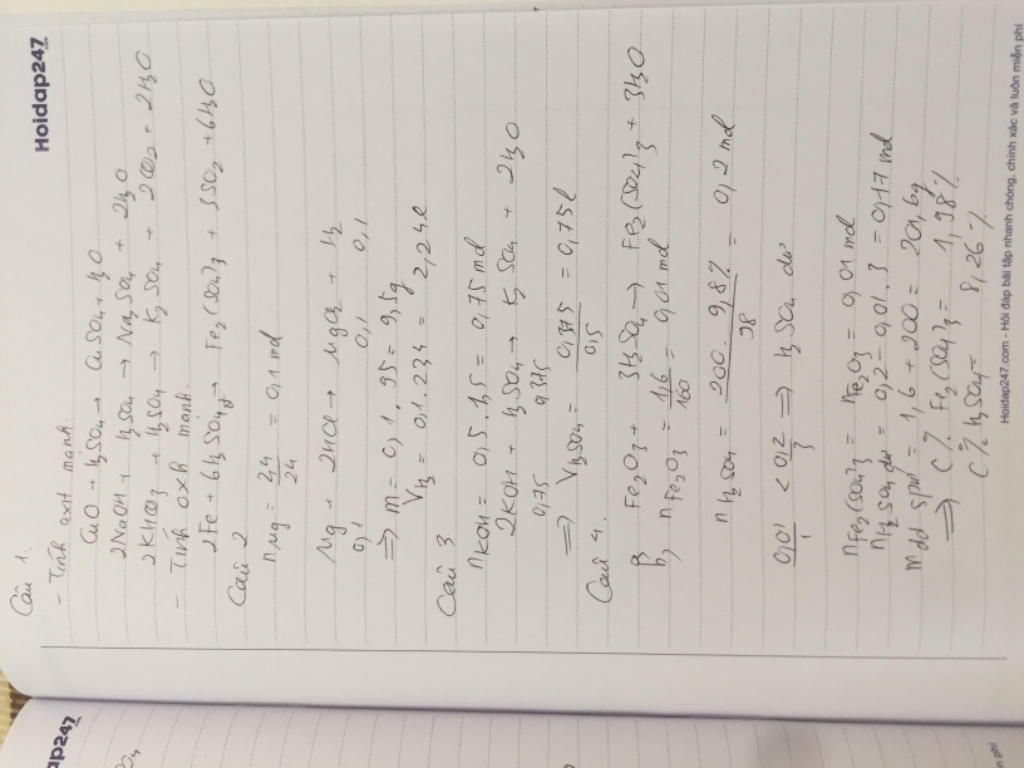 Hoidap247
Câu 1.
- Tính axit mạnh
CuO + H2SO4 → CuSO4 + H2O
2NaOH + H2SO4 → Na2SO4 + 2H2O
2KHCO3 + H2SO4 → K2SO4 + 2CO2 + 2H2O
- Tính oxh mạnh
2Fe + 6H2SO4đ → Fe2(SO4)3 + 3SO2 + 6H2O
Câu 2
nMg = 2,4/24 = 0,1 mol
Mg + 2HCl → MgCl2 + H2
0,1 0,1 0,1
=> m = 0,1 . 95 = 9,5g
VH2 = 0,1 . 22,4 = 2,24l
Câu 3
nKOH = 0,5 . 1,5 = 0,75 mol
2KOH + H2SO4 → K2SO4 + 2H2O
0,75 0,375
=> VH2SO4 = 0,375/0,5 = 0,75l
Câu 4.
Fe2O3 + 3H2SO4 → Fe2(SO4)3 + 3H2O
b, nFe2O3 = 1,6/160 = 0,01 mol
nH2SO4 = 200 . 9,8%/98 = 0,2 mol
0,01/1 < 0,2/3 => H2SO4 dư
nFe2(SO4)3 = nFe2O3 = 0,01 mol
nH2SO4 dư = 0,2 - 0,01 . 3 = 0,17 mol
mdd spư = 1,6 + 200 = 201,6g
=> C% Fe2(SO4)3 = 1,98%
C% H2SO4 = 8,26%
Hoidap247.com - Hỏi đáp bài tập nhanh chóng, chính xác và luôn miễn phí
ap247